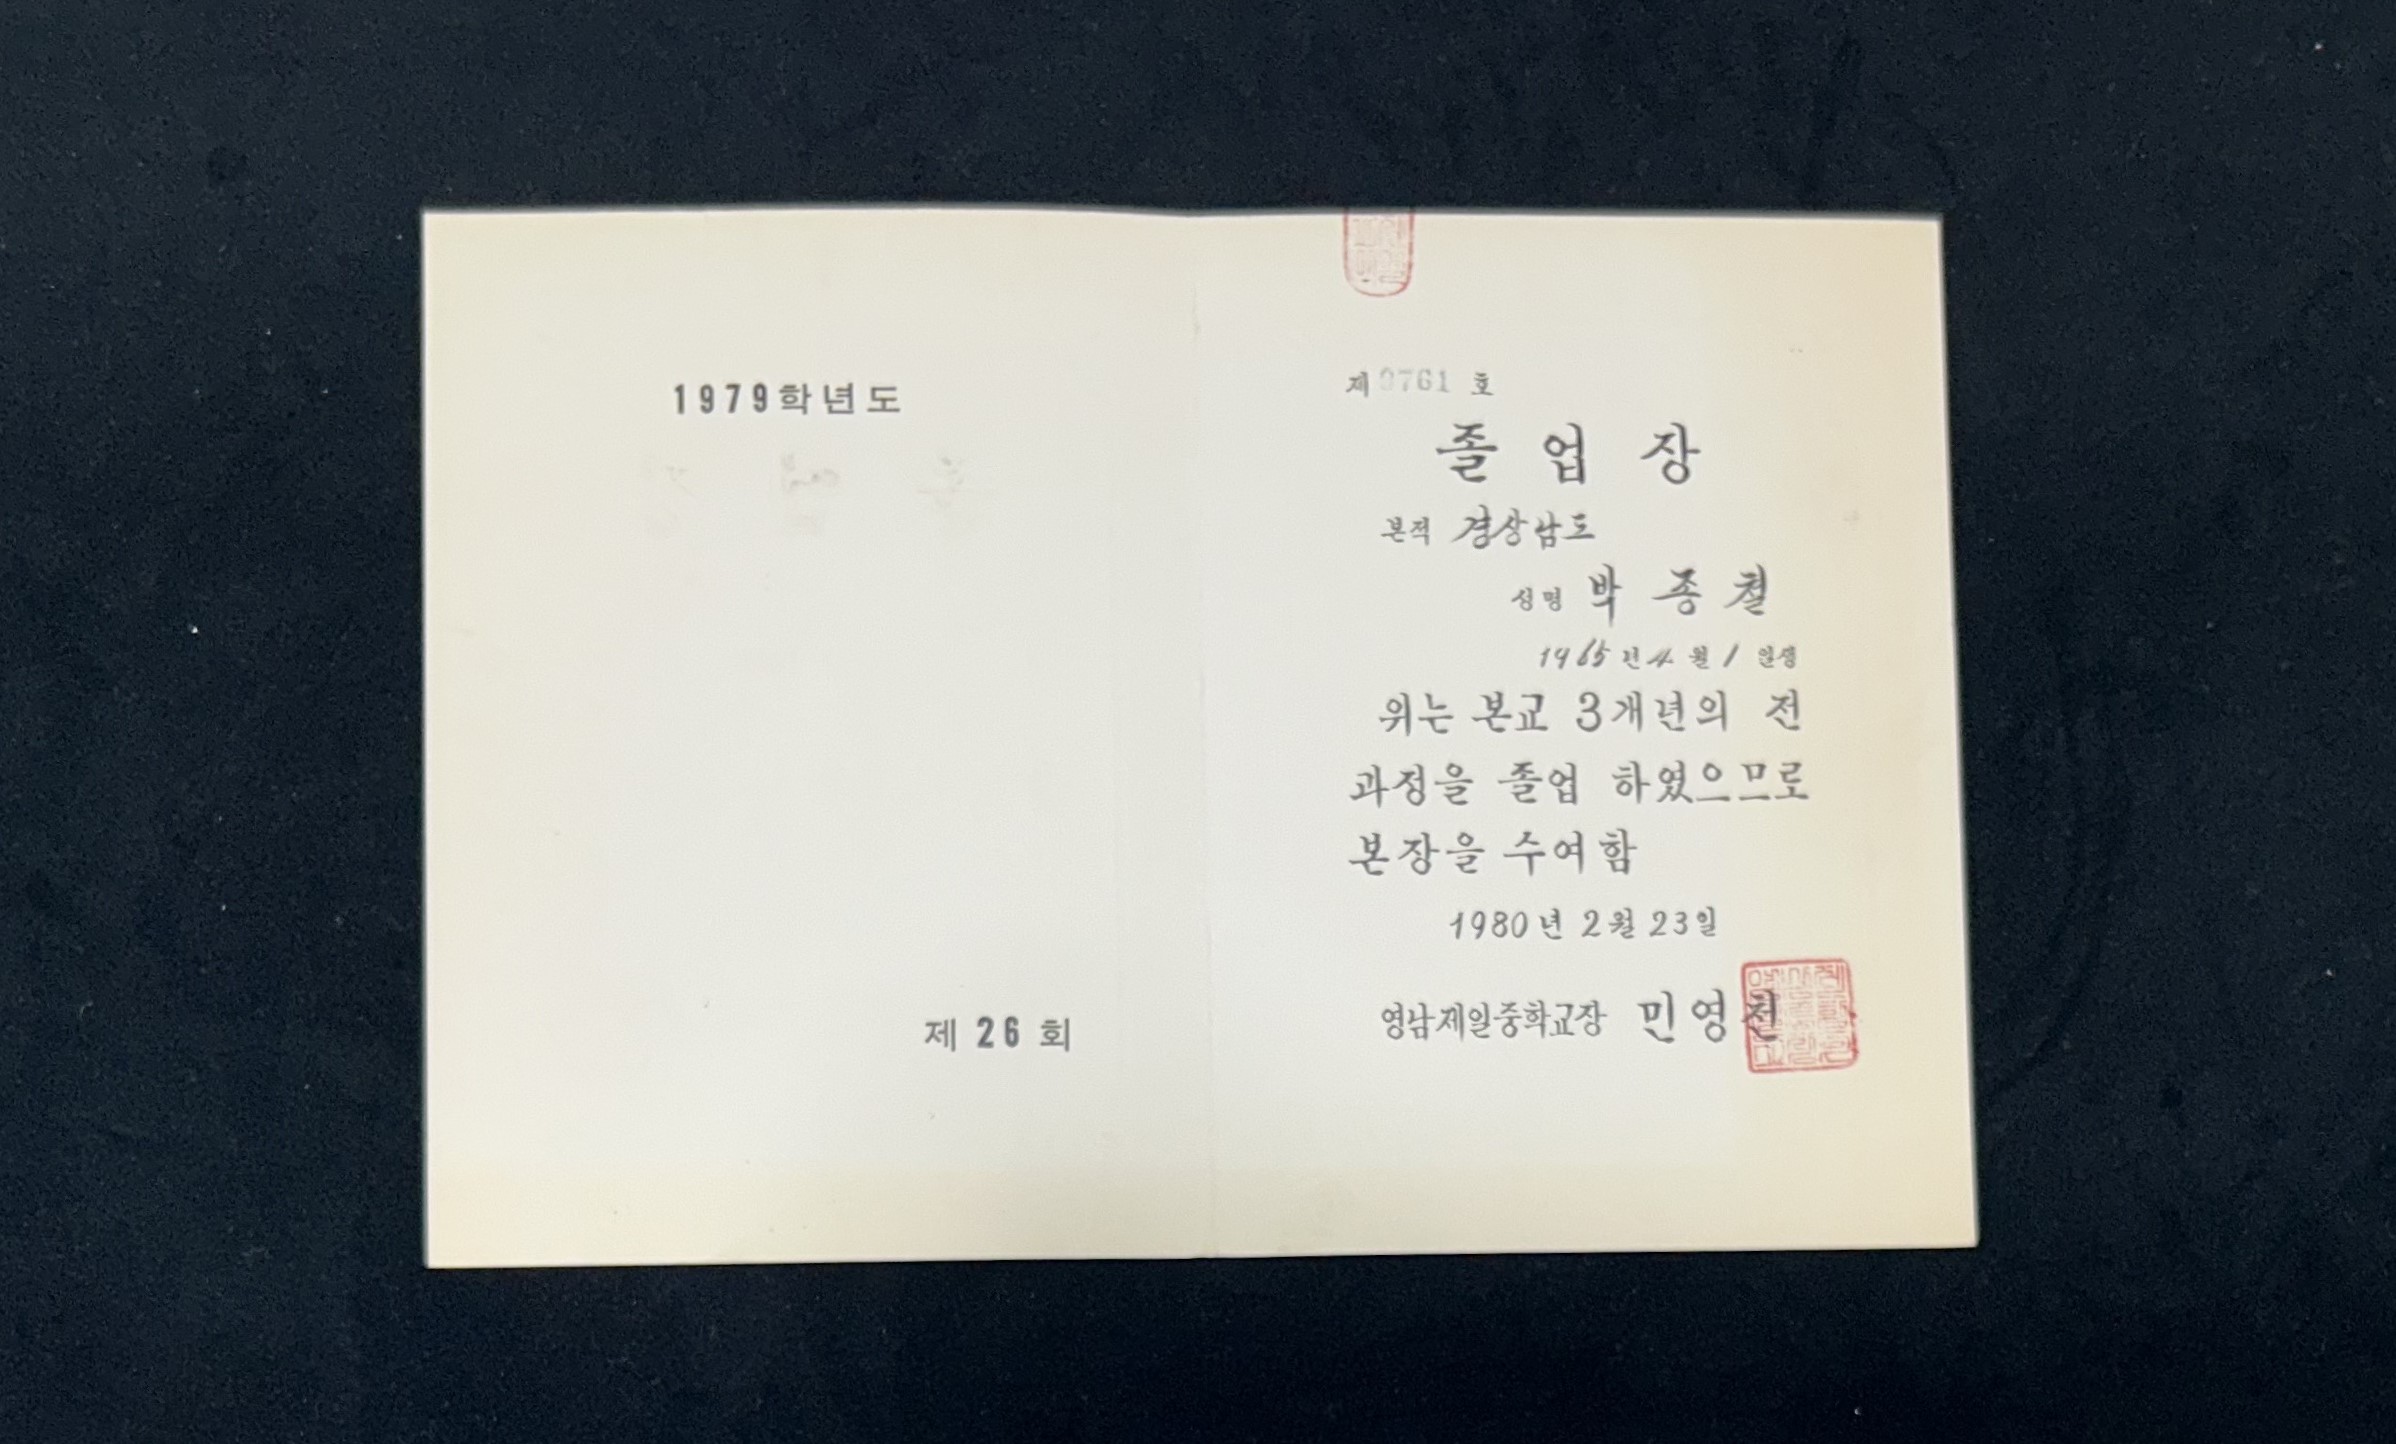 1979학년도
제 26 회
제 0761 호
졸업장
본적 경상남도
성명 박종철
1965년 4월 1일생
위는 본교 3개년의 전
과정을 졸업 하였으므로
본장을 수여함
1980년 2월 23일
영남제일중학교장 민영천